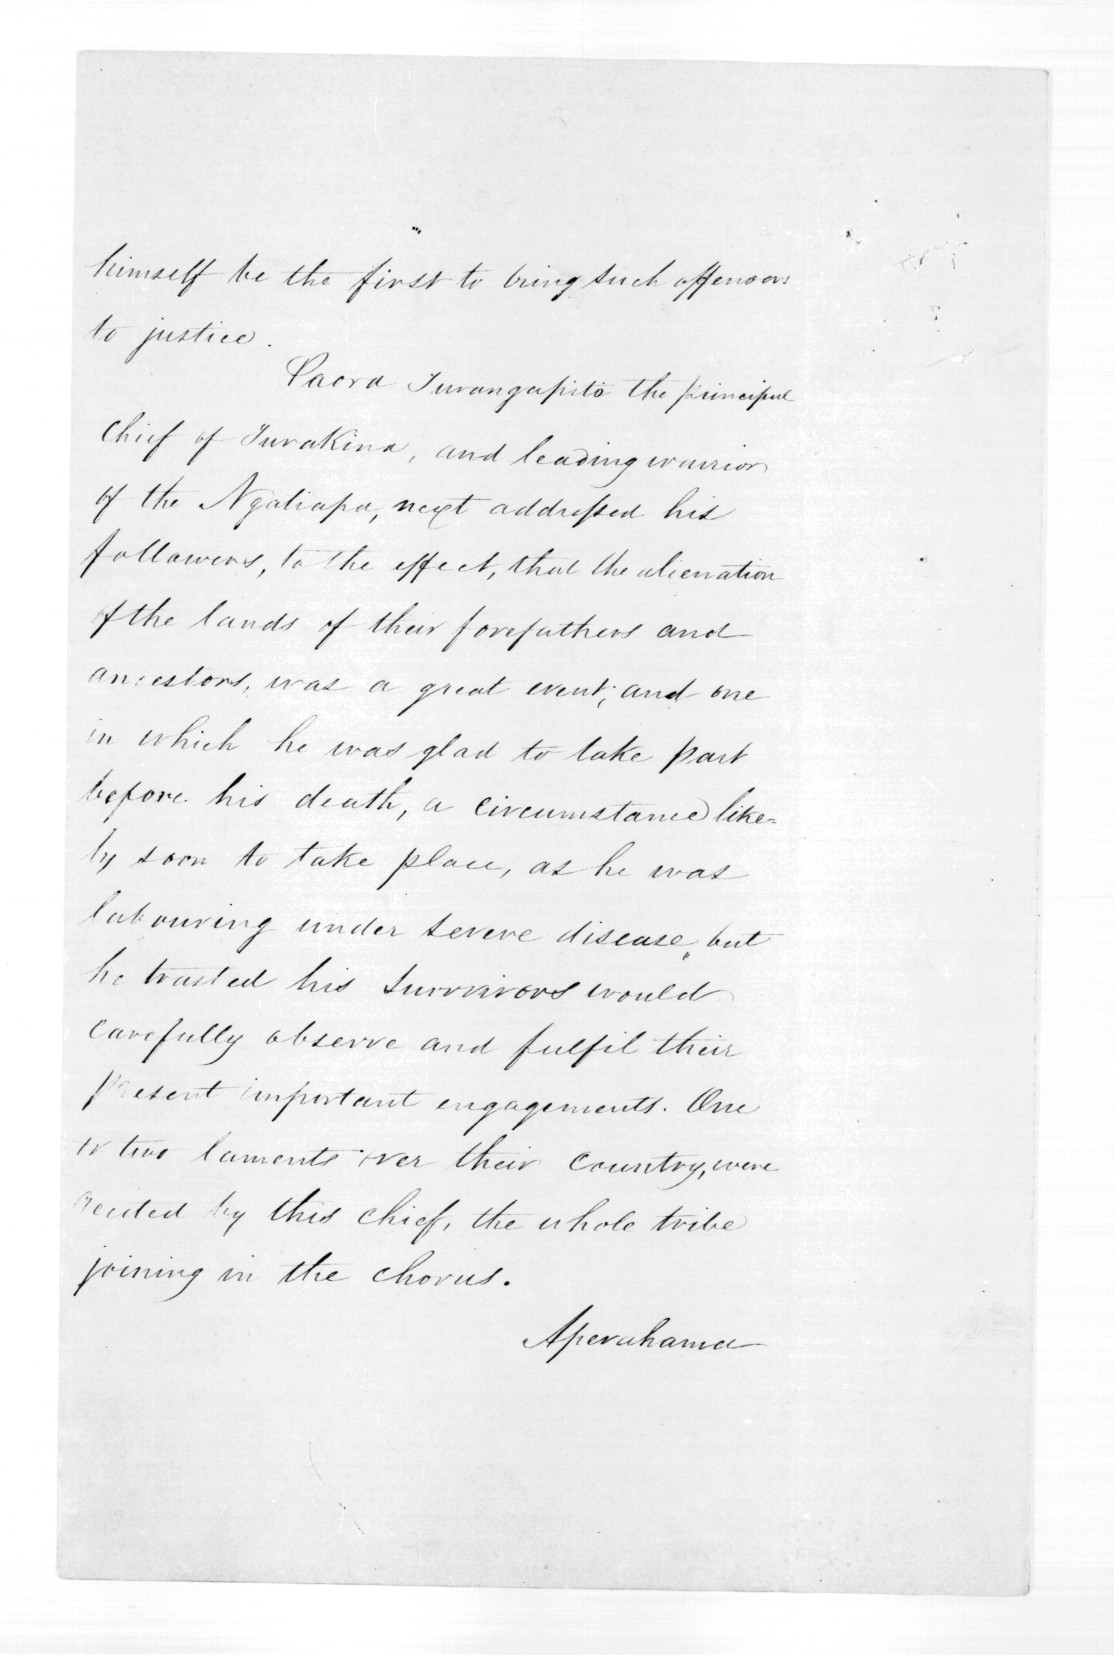 himself be the first to bring such offenders
to justice.
Paora Turangapito the principal
Chief of Turakina, and leading warrior
of the Ngatiapa, next addressed his
followers, to the effect, that the alienation
of the lands of their forefathers and
ancestors, was a great event; and one
in which he was glad to take part
before his death, a circumstance like-
ly soon to take place, as he was
labouring under severe disease, but
he trusted his survivors would
carefully observe and fulfil their
present important engagements. One
or two laments over their country, were
recited by this chief, the whole tribe
joining in the chorus.
Aperahama